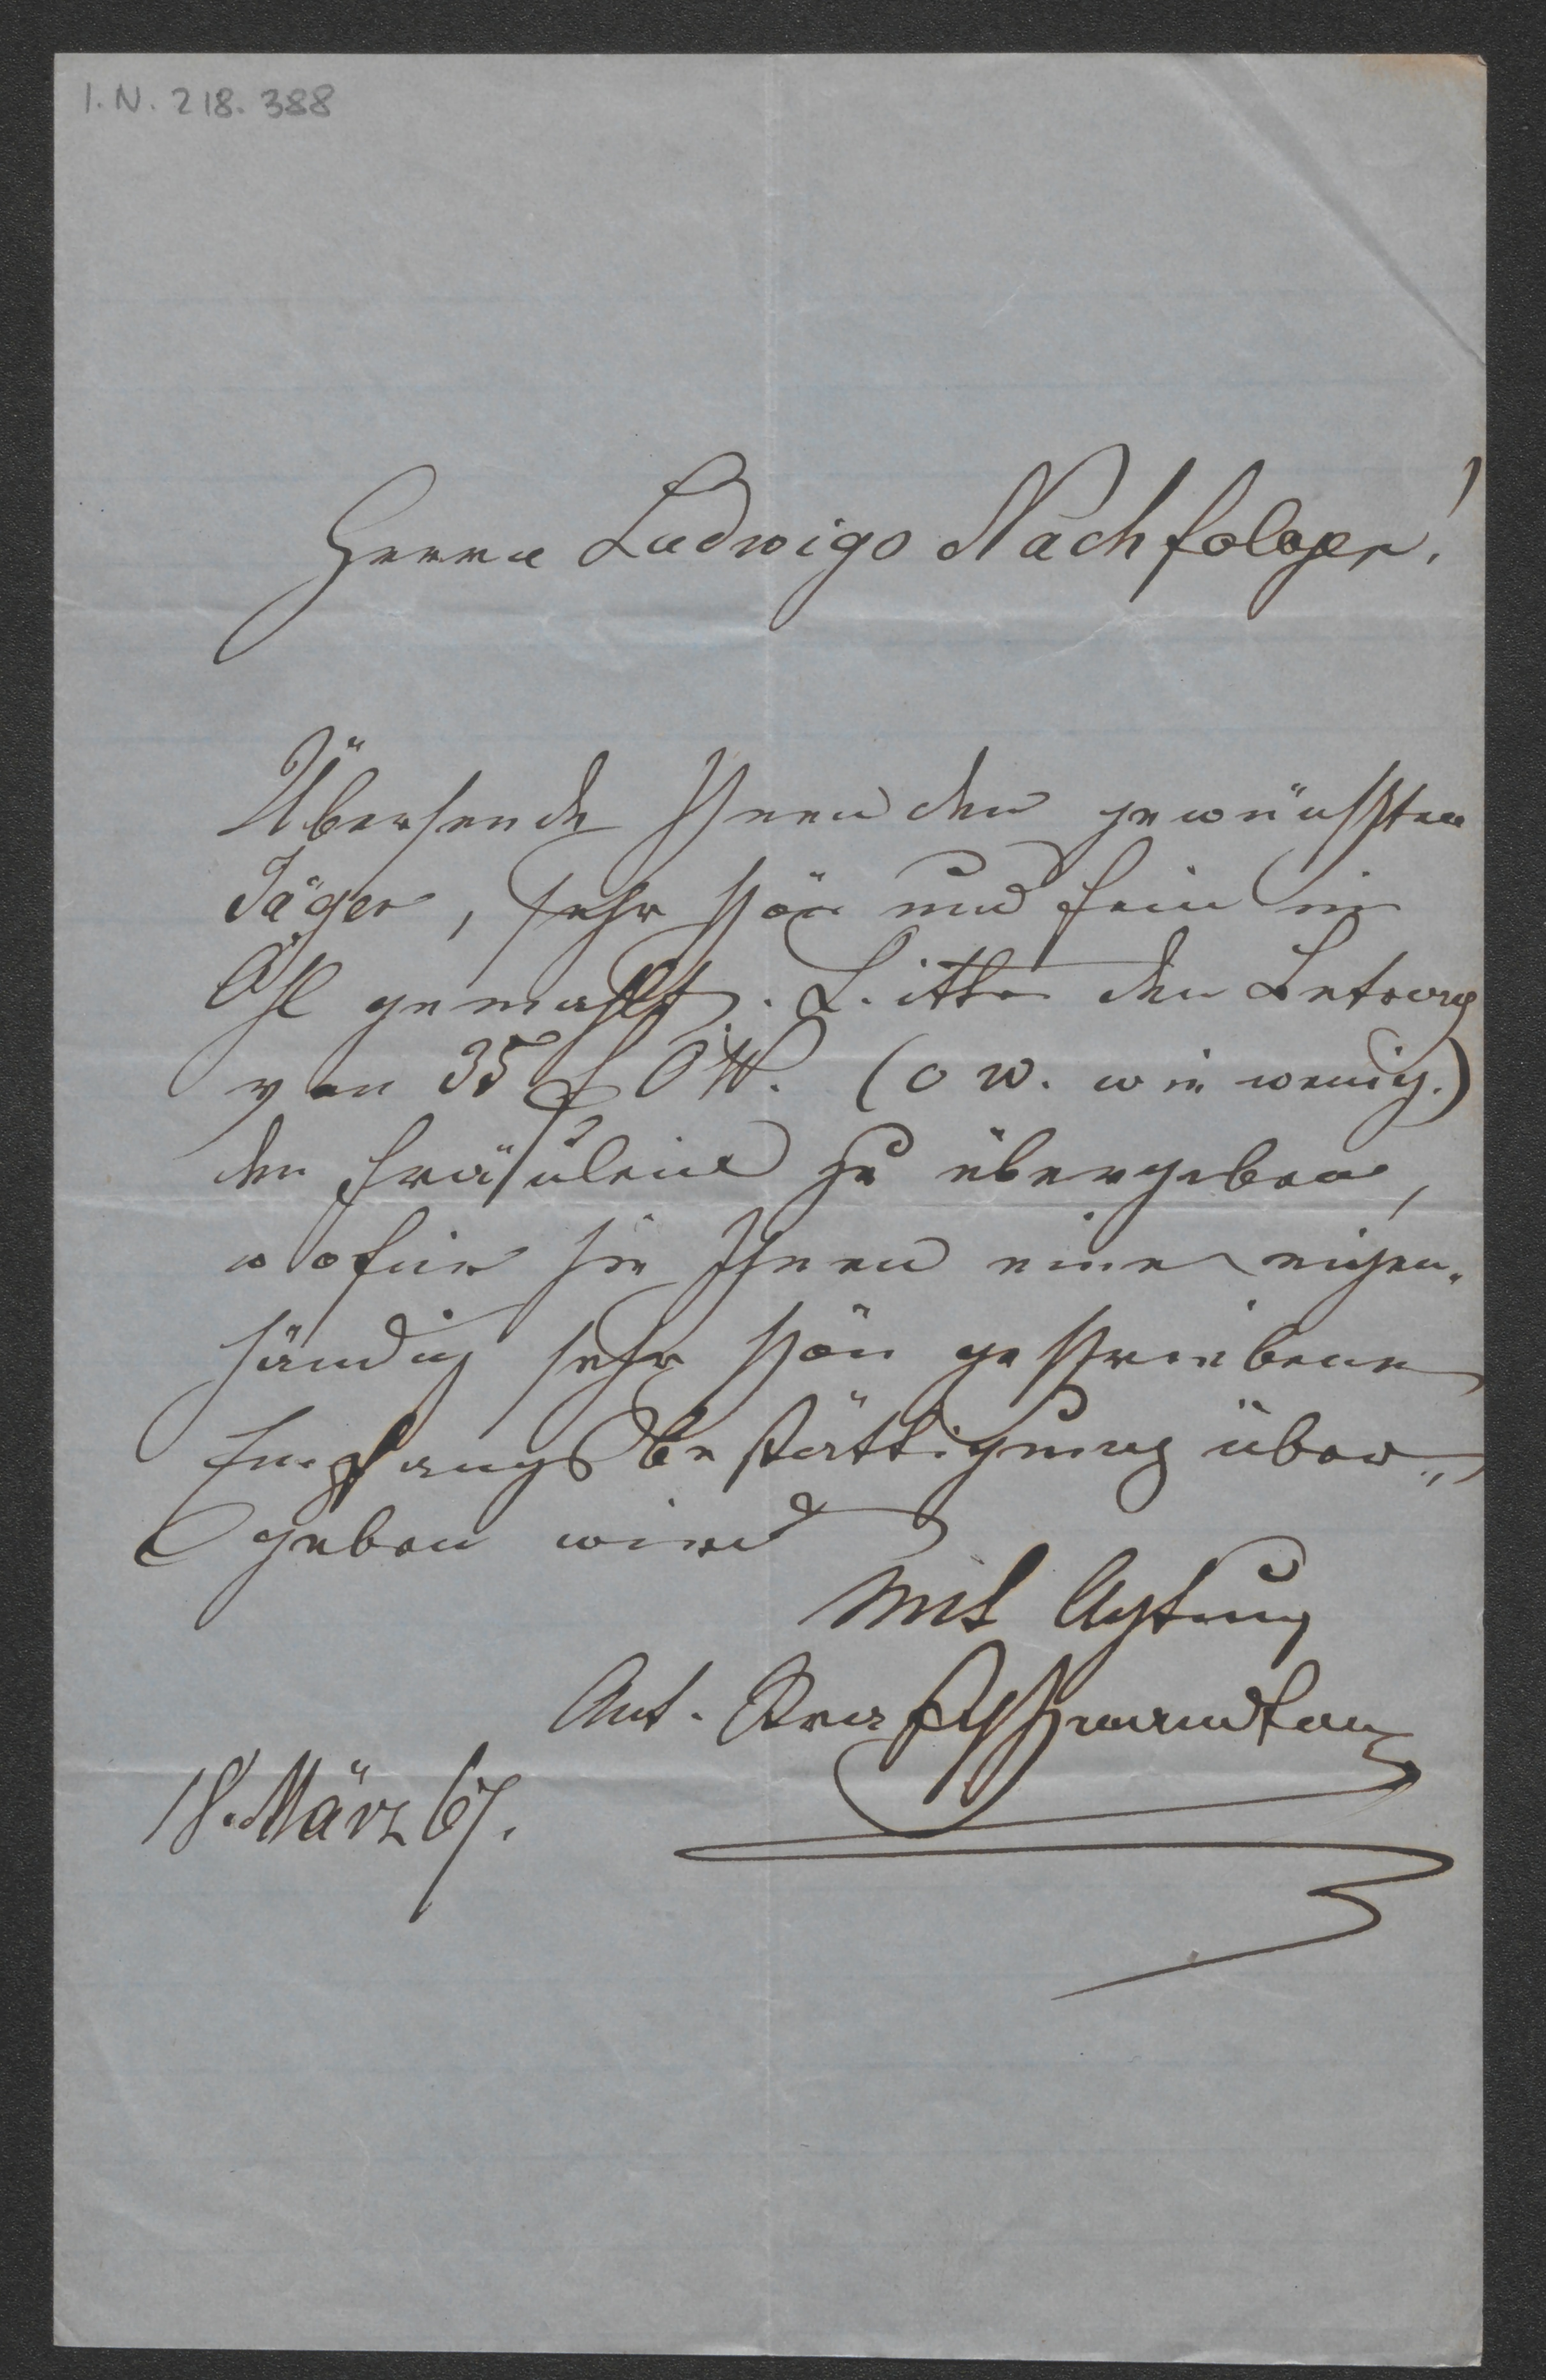 I.N. 218.388
Herrn Ludwigs Nachfolger!
Übersende Ihnen den gewünschten
Jäger, sehr schön und fein in
Öhl gemahlt. Bitte den Betrag
von 35 f ÖW. (o w. wie wenig.)
der Fräulein zu übergeben,
wofür sie Ihnen eine eigen„
händig sehr schön geschriebene
Empfangsbestättigung über„
geben wird
Mit Achtung
Ant.
18. März 67.